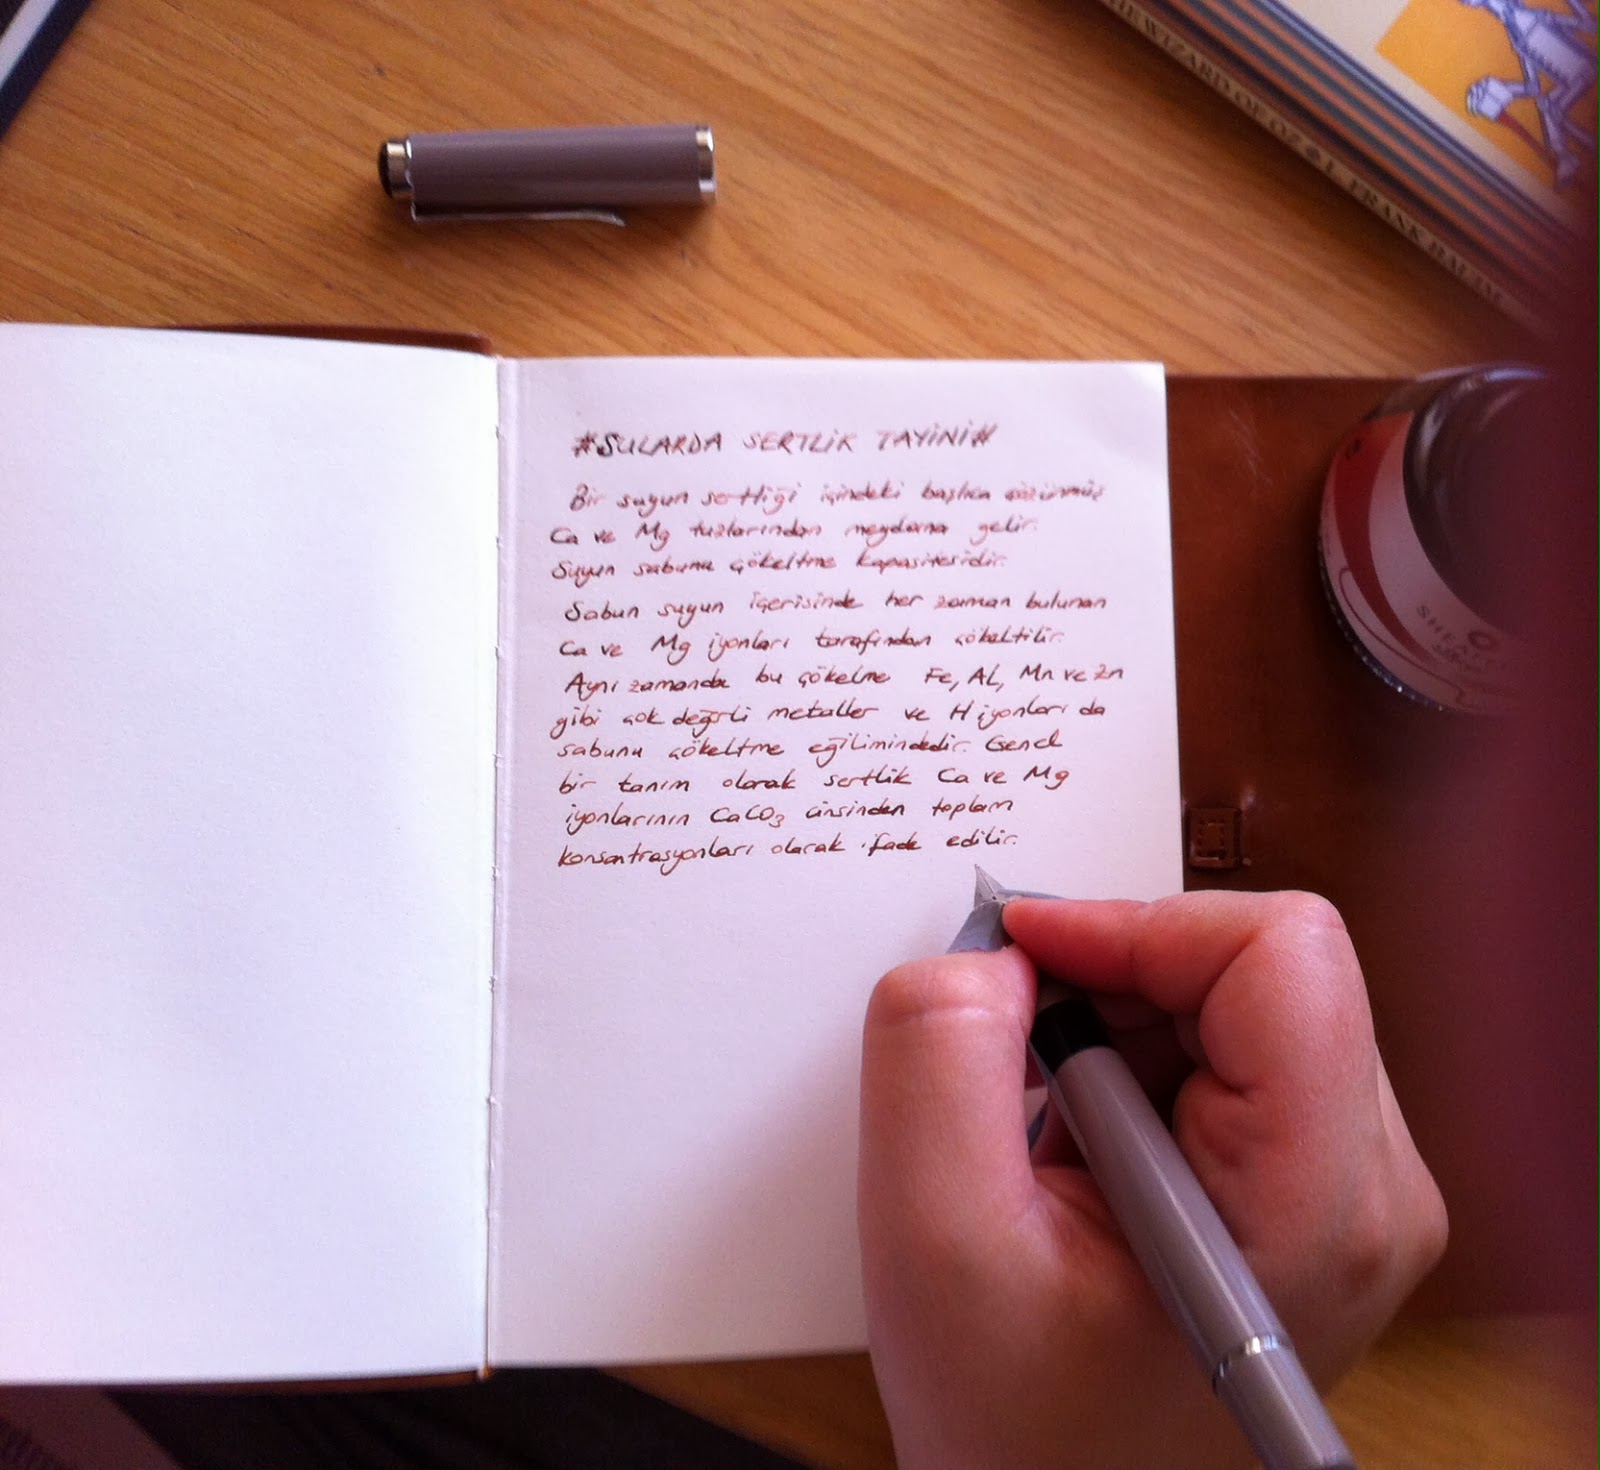 THE WIZARD OF OZ L. FRANK BAUM
#SULARDA SERTLİK TAYİNİ#
Bir suyun sertliği içindeki başlıca çözünmüş
Ca ve Mg tuzlarından meydana gelir.
Suyun sabunu çökeltme kapasitesidir.
Sabun suyun içerisinde her zaman bulunan
Ca ve Mg iyonları tarafından çökeltilir.
Aynı zamanda bu çökelme Fe, Al, Mn ve Zn
gibi çok değerli metaller ve H iyonları da
sabunu çökeltme eğilimindedir. Genel
bir tanım olarak sertlik Ca ve Mg
iyonlarının CaCO₃ cinsinden toplam
konsantrasyonları olarak ifade edilir.